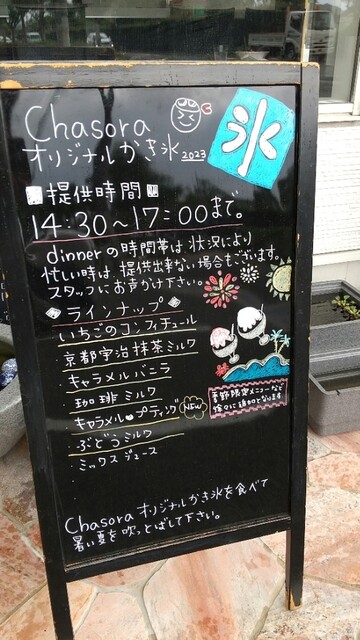 Chasora
オリジナルかき氷 2023
氷
提供時間
14:30~17:00まで。
dinnerの時間帯は状況により
忙しい時は、提供出来ない場合もございます。
スタッフにお声かけ下さい。
ラインナップ
いちごのコンフィチュール
京都宇治抹茶ミルク
キャラメルバニラ
珈琲ミルク
キャラメルプディング NEW
ぶどうミルク
ミックスジュース
季節限定メニューなど
徐々に追加となります
Chasoraオリジナルかき氷を食べて
暑い夏を吹っとばして下さい。